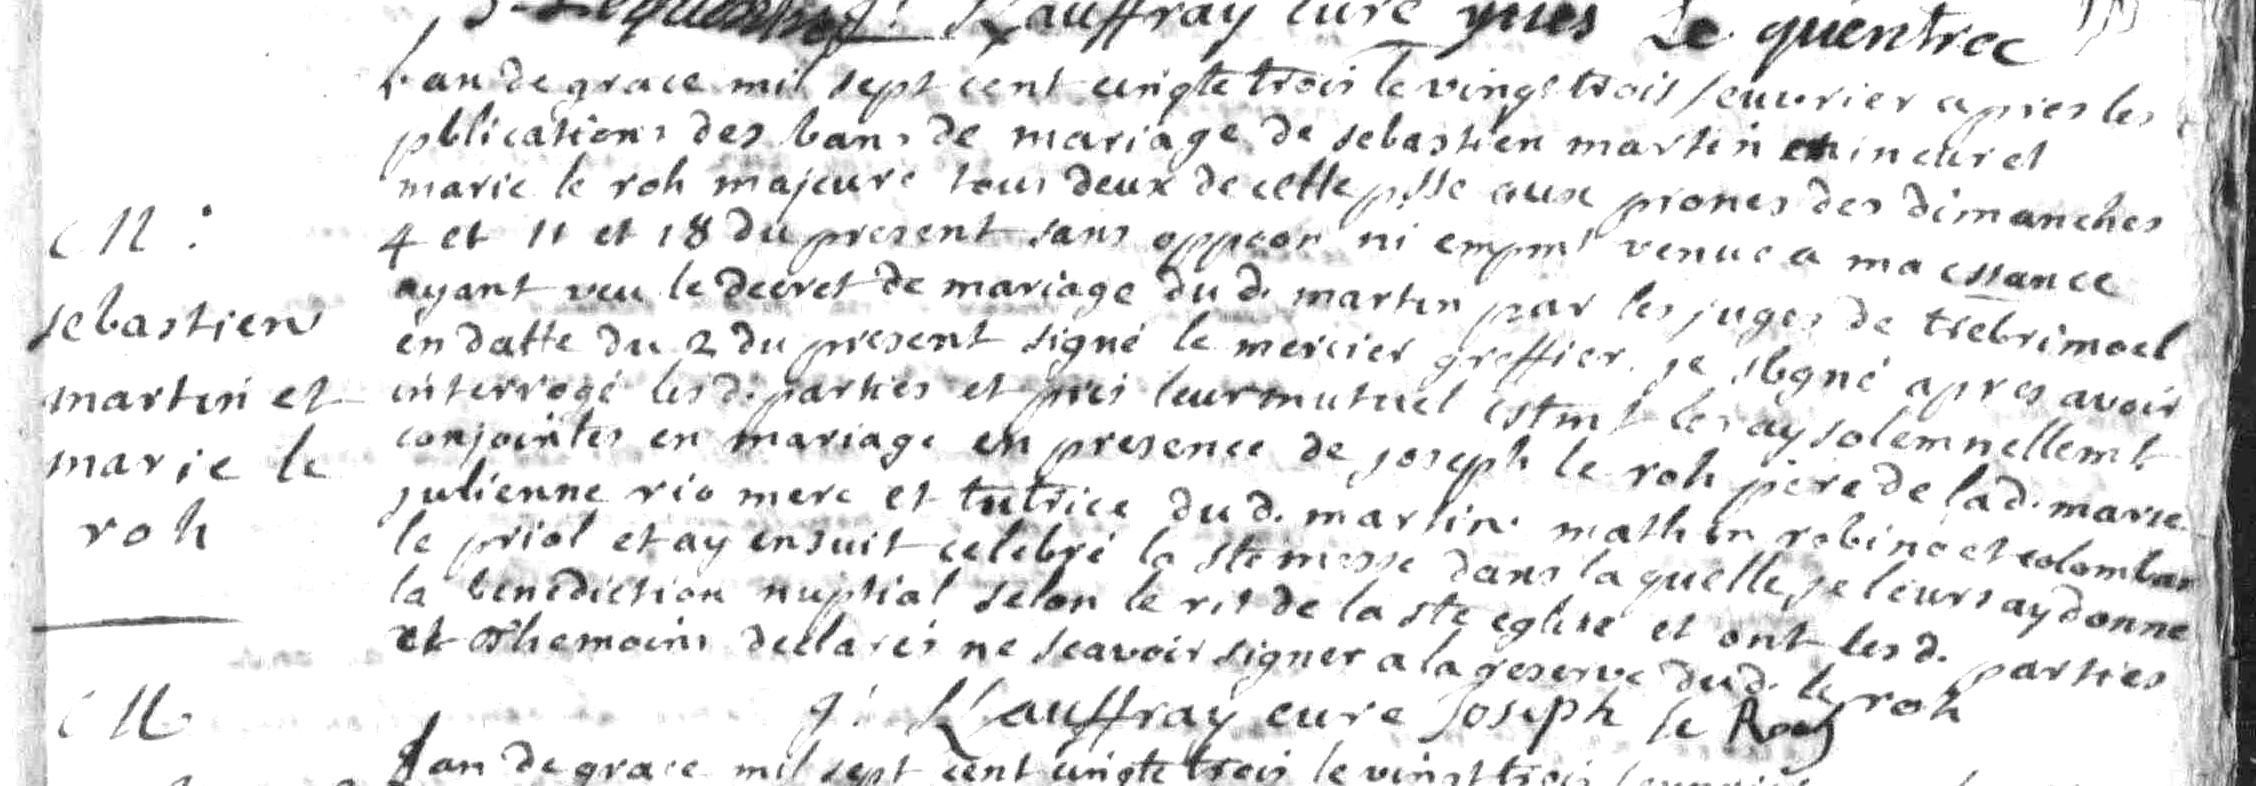 Lauffray curé yves Le quentrec
Lan de grace mil sept cent vingte trois le vingt trois feuvrier apres les
pblications des bans de mariage de sebastien martin mineur et
marie le roh majeure tous deux de cette psse aux prones des dimanches
4 et 11 et 18 du present sans oppoon ni empmt venue a ma cssance
ayant veu le decret de mariage du d. martin par les juges de trebrimoel
en datte du 2 du present signé le mercier greffier. je sbgné apres avoir
interrogé les d. parties et pris leur mutuel cstmt les ay solemnellemt
conjointes en mariage en presence de joseph le roh pere de la d. marie
julienne rio mere et tutrice du d. martin. mathin robino et colomban
le priol et ay ensuit celebré la ste messe dans laquelle je leurs ay donne
la benediction nuptial selon le rit de la ste eglise et ont les d. parties
et themoins declarés ne scavoir signer a la reserve du d. le roh
g: Lauffray curé Joseph le Roh
M:
sebastien
martin et
marie le
roh
M
Lan de grace mil sept cent vingte trois le vingt trois feuvrier